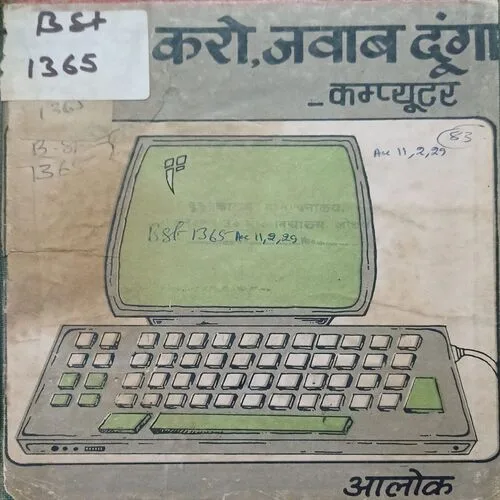 B St
1365
करो, जवाब दूंगा
_कम्प्यूटर
1365
B.St
1365
83
Acc 11,2,29
BSt 1365 Acc 11,2,29
आलोक